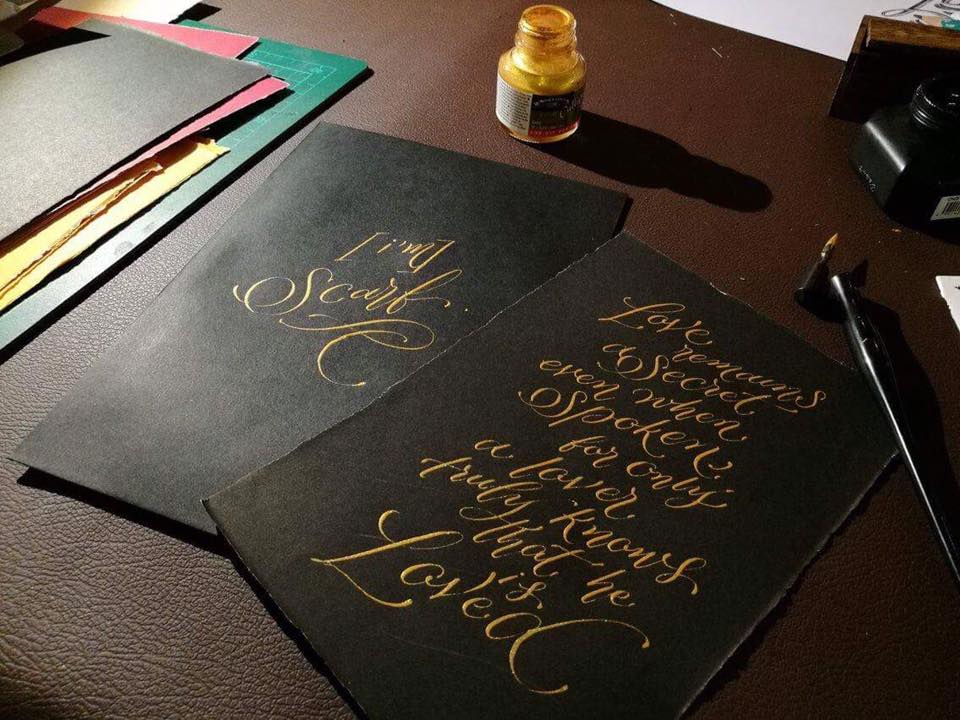 Scarf
Love
remains
a Secret
even when
Spoken,
for only
a lover
truly knows
that he
is
Loved